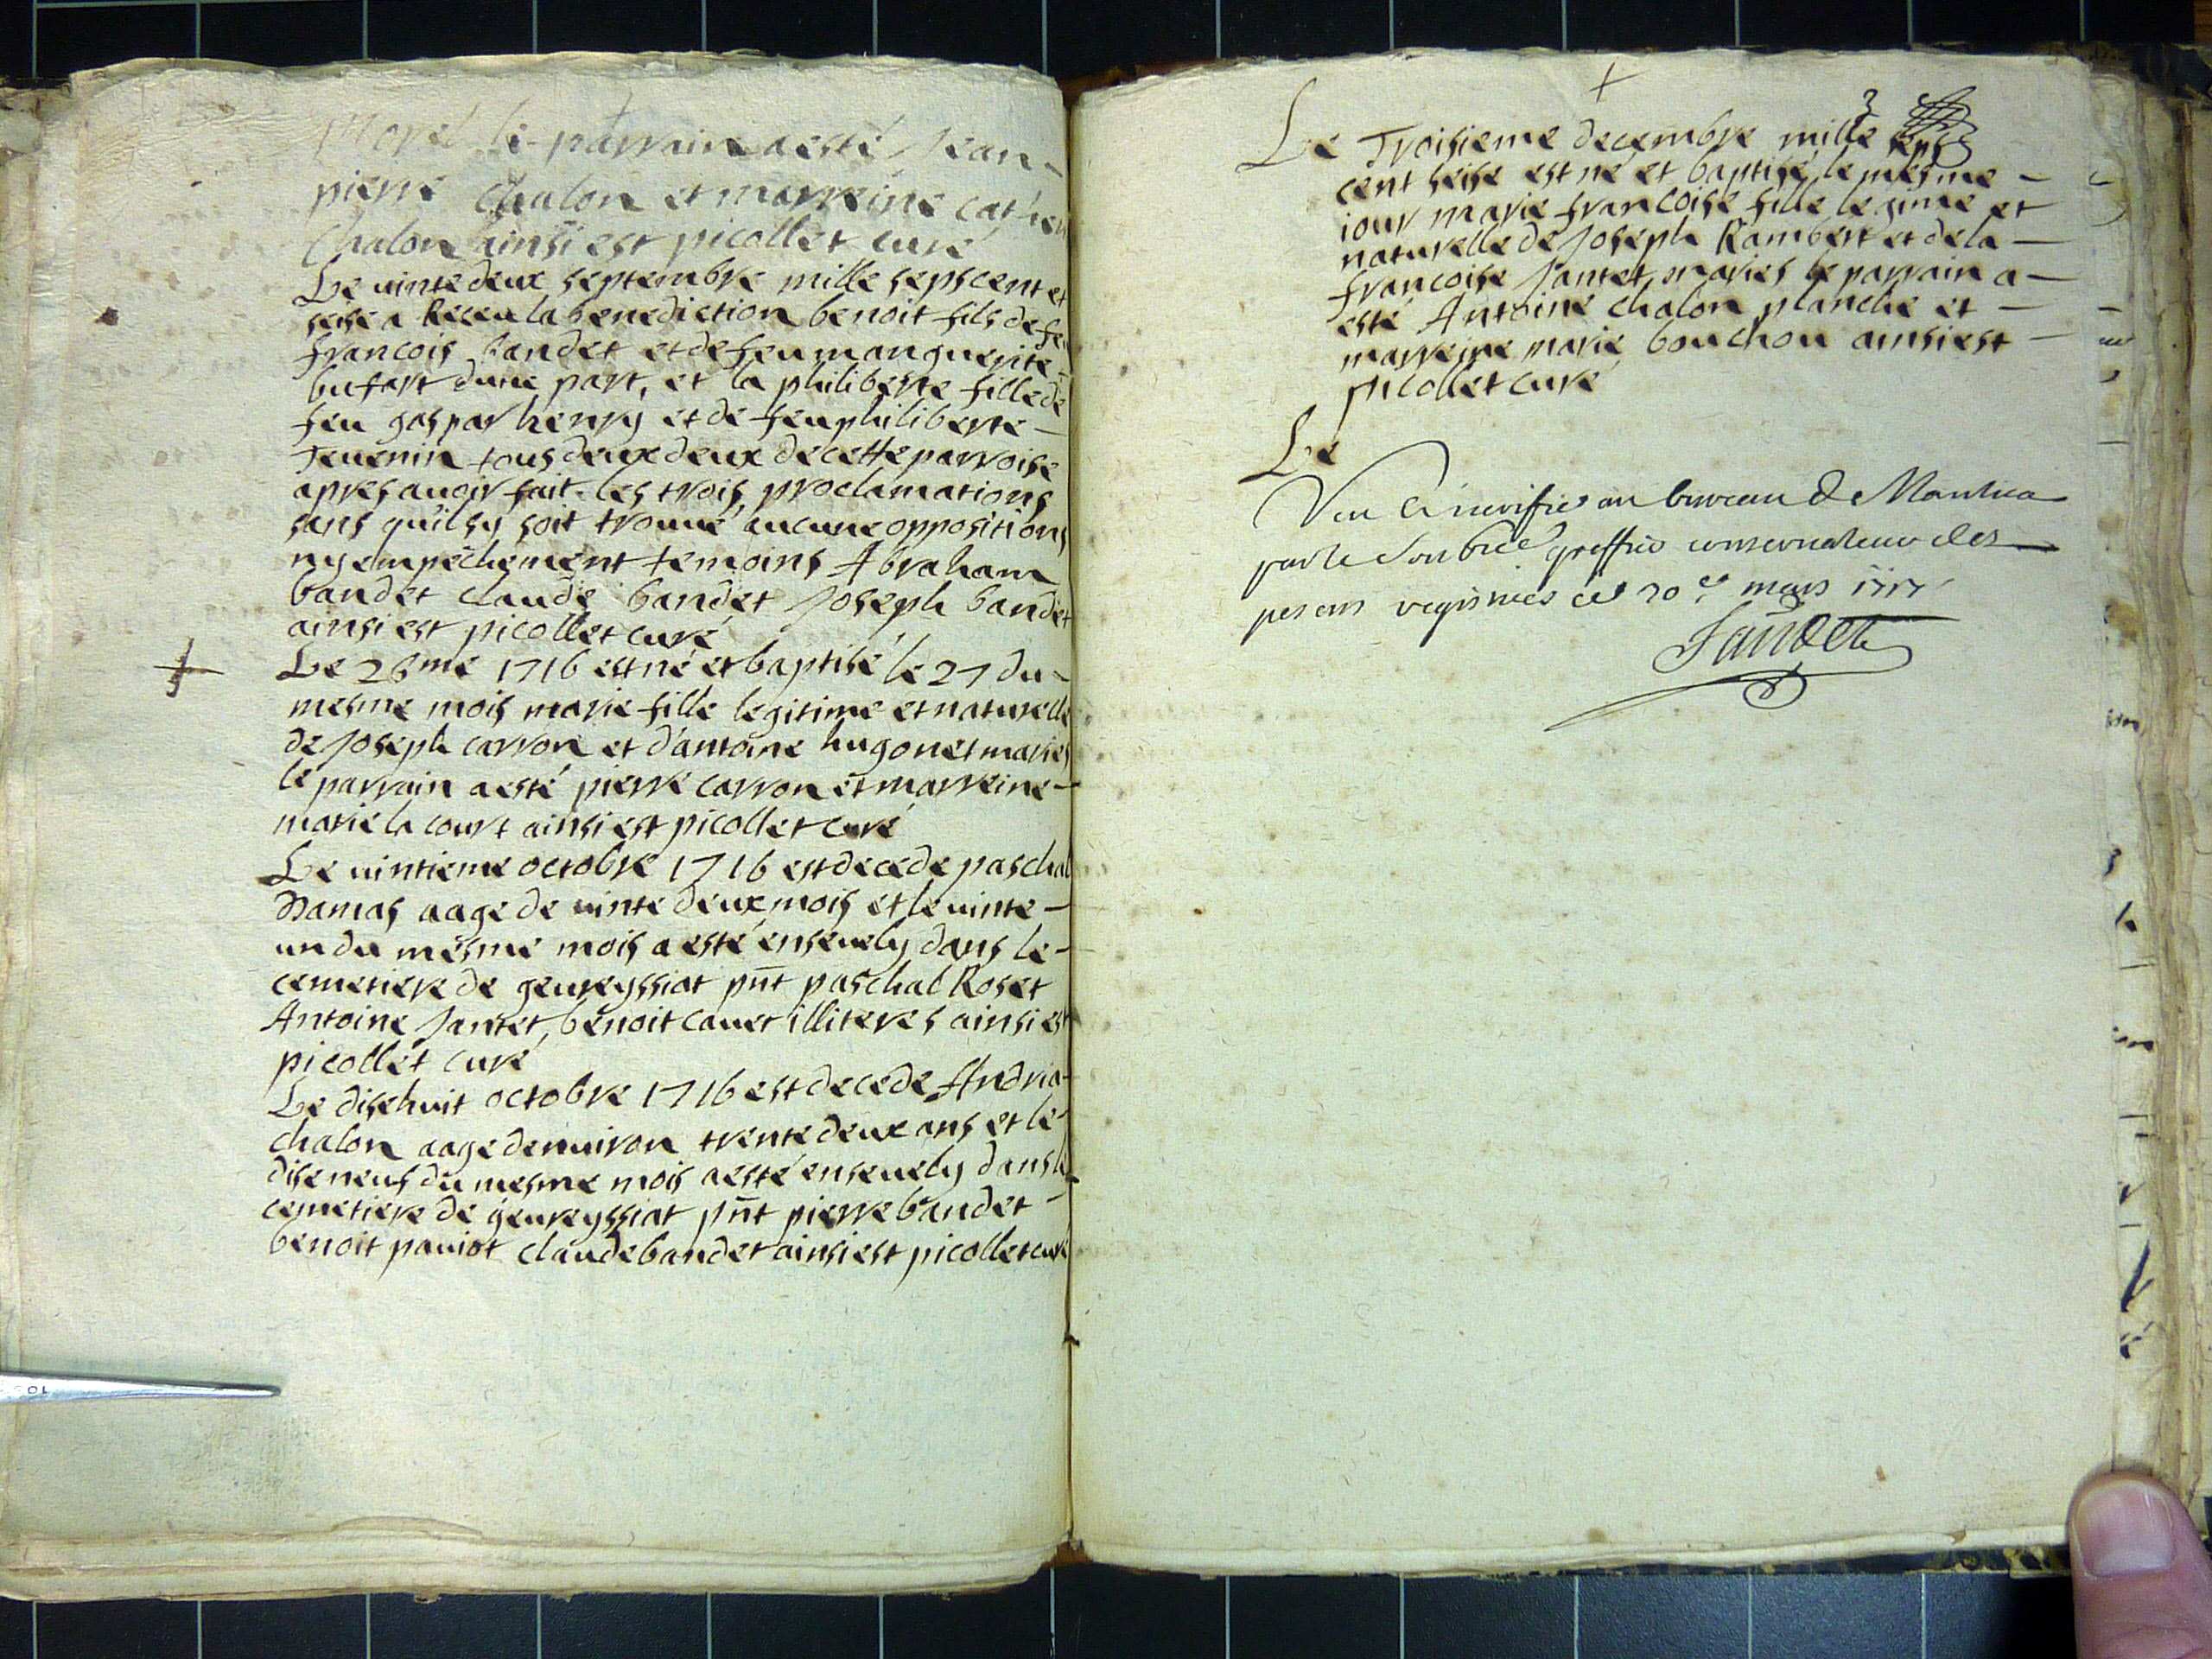 Morel le parrain a esté Jean-
pierre chalon et marreine cather
chalon ainsi est picollet curé
Le vinte deux septembre mille sepscent et
seise a Receu la benediction benoit fils de feu
francois bandet et de feu marguerite-
bufart dune part, et la philiberte fille de
feu gaspar henry et de feu philiberte-
Tevenin tous deux deux de cette parroise
apres auoir fait les trois proclamations
sans qu'il sy soit trouué aucune oppositions
ny empechement temoins Abraham
bandet claude bandet Joseph bandet
ainsi est picollet curé
Le 26me 1716 est né et baptisé le 27 du-
mesme mois marie fille legitime et naturelle
de Joseph carron et d'antoine hugonet maries
le parrain a esté pierre carron et marreine-
marie la court ainsi est picollet curé
Le vintieme octobre 1716 est decede paschal
Damas aage de vinte deux mois et le vinte-
un du mesme mois a esté enseuely dans le-
cemetiere de geureyssiat pnt paschal Roset
Antoine Jantet, benoit cauet illiteres ainsi est
picollet curé
Le disehuit octobre 1716 est decede Andria-
chalon aage denuiron trente deux ans et le-
diseneuf du mesme mois a esté enseuely dans le
cemetiere de geureyssiat pnt pierre bandet-
benoit pauiot claude bandet ainsi est picollet curé
3
Le Troisieme decembre mille seps
cent seise est né et baptisé le mesme-
iour marie francoise fille legime et
naturelle de Joseph Rambert et de la-
francoise Jantet maries le parrain a-
esté Antoine chalon planche et-
marreine marie bouchou ainsi est-
picollet curé
Le
Veu et verifié au bureau de Mantua
par le greffier conservateur des
registres ce 20e mars 1717